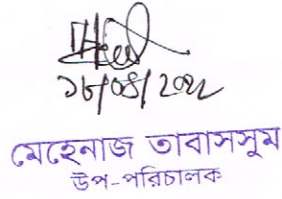 ১৮/০৪/২০২২
মেহেনাজ তাবাসসুম
উপ-পরিচালক